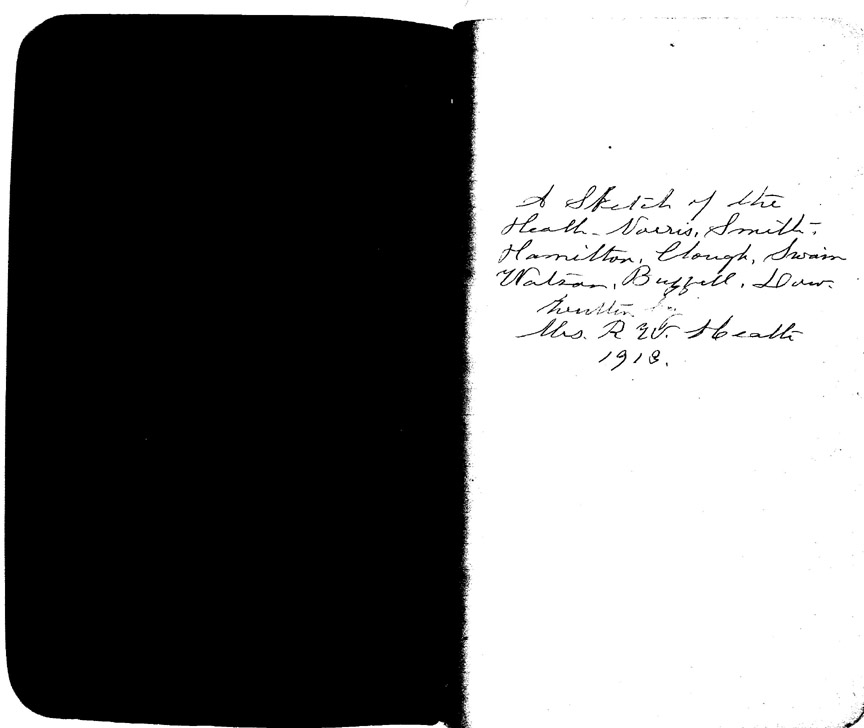 A Sketch of the
Heath- Norris, Smith-
Hamilton, Clough, Swain
Watson, Buzzell, Dow-
written by
Mrs. R. W. Heath
1918.